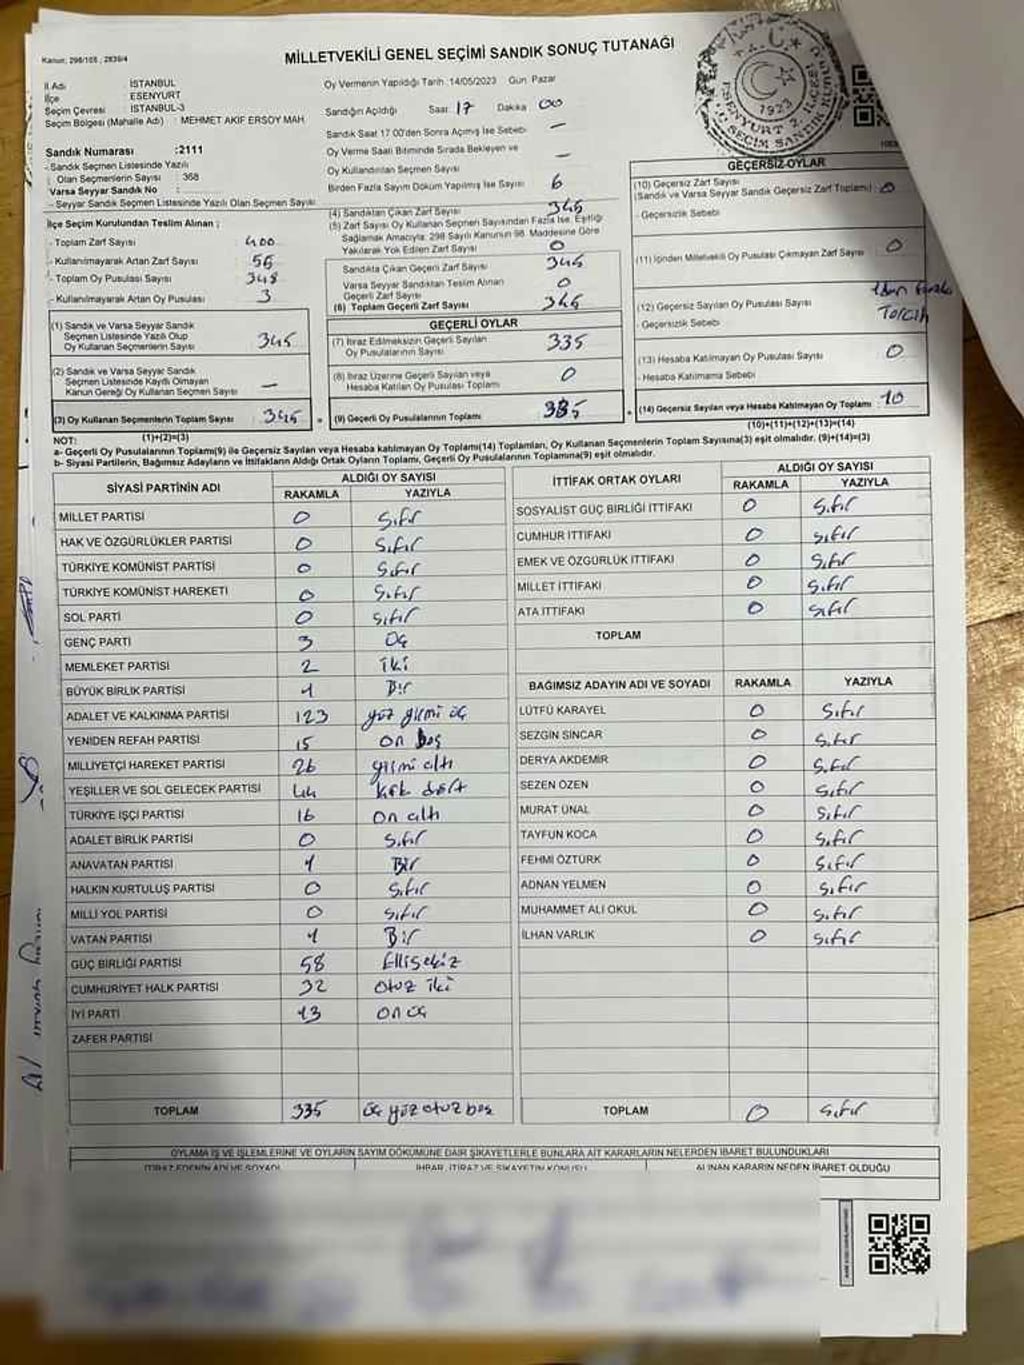 Kanun: 298/105 , 2839/4
MİLLETVEKİLİ GENEL SEÇİMİ SANDIK SONUÇ TUTANAĞI
İl Adı : İSTANBUL
İlçe : ESENYURT
Seçim Çevresi : İSTANBUL-3
Seçim Bölgesi (Mahalle Adı) : MEHMET AKİF ERSOY MAH.
Sandık Numarası :2111
- Sandık Seçmen Listesinde Yazılı
Olan Seçmenlerin Sayısı : 368
Varsa Seyyar Sandık No :
- Seyyar Sandık Seçmen Listesinde Yazılı Olan Seçmen Sayısı:
Oy Vermenin Yapıldığı Tarih :14/05/2023 Gün: Pazar
Sandığın Açıldığı Saat: 17 Dakika 00
Sandık Saat 17.00'den Sonra Açılmış İse Sebebi —
Oy Verme Saati Bitiminde Sırada Bekleyen ve
Oy Kullandırılan Seçmen Sayısı —
Birden Fazla Sayım Döküm Yapılmış İse Sayısı 6
1923
İlçe Seçim Kurulundan Teslim Alınan ;
- Toplam Zarf Sayısı : 400
- Kullanılmayarak Artan Zarf Sayısı : 55
- Toplam Oy Pusulası Sayısı : 348
- Kullanılmayarak Artan Oy Pusulası : 3
(1) Sandık ve Varsa Seyyar Sandık
Seçmen Listesinde Yazılı Olup
Oy Kullanan Seçmenlerin Sayısı : 345
(2) Sandık ve Varsa Seyyar Sandık
Seçmen Listesinde Kaydı Olmayan
Kanun Gereği Oy Kullanan Seçmen Sayısı : —
(3) Oy Kullanan Seçmenlerin Toplam Sayısı : 345
(1)+(2)=(3)
(4) Sandıktan Çıkan Zarf Sayısı 345
(5) Zarf Sayısı Oy Kullanan Seçmen Sayısından Fazla İse, Eşitliği
Sağlamak Amacıyla, 298 Sayılı Kanunun 98. Maddesine Göre
Yakılarak Yok Edilen Zarf Sayısı 0
Sandıkta Çıkan Geçerli Zarf Sayısı 345
Varsa Seyyar Sandıktan Teslim Alınan
Geçerli Zarf Sayısı 0
(6) Toplam Geçerli Zarf Sayısı 345
GEÇERLİ OYLAR
(7) İtiraz Edilmeksizin Geçerli Sayılan
Oy Pusulalarının Sayısı 335
(8) İtiraz Üzerine Geçerli Sayılan veya
Hesaba Katılan Oy Pusulası Toplamı 0
(9) Geçerli Oy Pusulalarının Toplamı 335
GEÇERSİZ OYLAR
(10) Geçersiz Zarf Sayısı
(Sandık ve Varsa Seyyar Sandık Geçersiz Zarf Toplamı) : 0
- Geçersizlik Sebebi
(11) İçinden Milletvekili Oy Pusulası Çıkmayan Zarf Sayısı : 0
(12) Geçersiz Sayılan Oy Pusulası Sayısı
- Geçersizlik Sebebi
1den fazla
Tercih
(13) Hesaba Katılmayan Oy Pusulası Sayısı : 0
- Hesaba Katılmama Sebebi
(14) Geçersiz Sayılan veya Hesaba Katılmayan Oy Toplamı : 10
(10)+(11)+(12)+(13)=(14)
NOT:
a- Geçerli Oy Pusulalarının Toplamı(9) ile Geçersiz Sayılan veya Hesaba katılmayan Oy Toplamı(14) Toplamları, Oy Kullanan Seçmenlerin Toplam Sayısına(3) eşit olmalıdır. (9)+(14)=(3)
b- Siyasi Partilerin, Bağımsız Adayların ve İttifakların Aldığı Ortak Oyların Toplamı, Geçerli Oy Pusulalarının Toplamına(9) eşit olmalıdır.
SİYASİ PARTİNİN ADI ALDIĞI OY SAYISI
RAKAMLA YAZIYLA
MİLLET PARTİSİ 0 Sıfır
HAK VE ÖZGÜRLÜKLER PARTİSİ 0 Sıfır
TÜRKİYE KOMÜNİST PARTİSİ 0 Sıfır
TÜRKİYE KOMÜNİST HAREKETİ 0 Sıfır
SOL PARTİ 0 Sıfır
GENÇ PARTİ 3 Üç
MEMLEKET PARTİSİ 2 İki
BÜYÜK BİRLİK PARTİSİ 1 Bir
ADALET VE KALKINMA PARTİSİ 123 yüz yirmi üç
YENİDEN REFAH PARTİSİ 15 on beş
MİLLİYETÇİ HAREKET PARTİSİ 26 yirmi altı
YEŞİLLER VE SOL GELECEK PARTİSİ 44 kırk dört
TÜRKİYE İŞÇİ PARTİSİ 16 On altı
ADALET BİRLİK PARTİSİ 0 Sıfır
ANAVATAN PARTİSİ 1 Bir
HALKIN KURTULUŞ PARTİSİ 0 Sıfır
MİLLİ YOL PARTİSİ 0 Sıfır
VATAN PARTİSİ 1 Bir
GÜÇ BİRLİĞİ PARTİSİ 58 Ellisekiz
CUMHURİYET HALK PARTİSİ 32 otuz iki
İYİ PARTİ 13 on üç
ZAFER PARTİSİ
TOPLAM 335 üç yüz otuz beş
İTTİFAK ORTAK OYLARI ALDIĞI OY SAYISI
RAKAMLA YAZIYLA
SOSYALİST GÜÇ BİRLİĞİ İTTİFAKI 0 Sıfır
CUMHUR İTTİFAKI 0 sıfır
EMEK VE ÖZGÜRLÜK İTTİFAKI 0 Sıfır
MİLLET İTTİFAKI 0 Sıfır
ATA İTTİFAKI 0 Sıfır
TOPLAM
BAĞIMSIZ ADAYIN ADI VE SOYADI RAKAMLA YAZIYLA
LÜTFÜ KARAYEL 0 Sıfır
SEZGİN SİNCAR 0 Sıfır
DERYA AKDEMİR 0 Sıfır
SEZEN ÖZEN 0 Sıfır
MURAT ÜNAL 0 Sıfır
TAYFUN KOCA 0 Sıfır
FEHMİ ÖZTÜRK 0 Sıfır
ADNAN YELMEN 0 Sıfır
MUHAMMET ALİ OKUL 0 Sıfır
İLHAN VARLIK 0 Sıfır
TOPLAM 0 Sıfır
OYLAMA İŞ VE İŞLEMLERİNE VE OYLARIN SAYIM DÖKÜMÜNE DAİR ŞİKAYETLERLE BUNLARA AİT KARARLARIN NELERDEN İBARET BULUNDUKLARI
İTİRAZ EDENİN ADI VE SOYADI İHBAR, İTİRAZ VE ŞİKAYETİN KONUSU ALINAN KARARIN NEDEN İBARET OLDUĞU